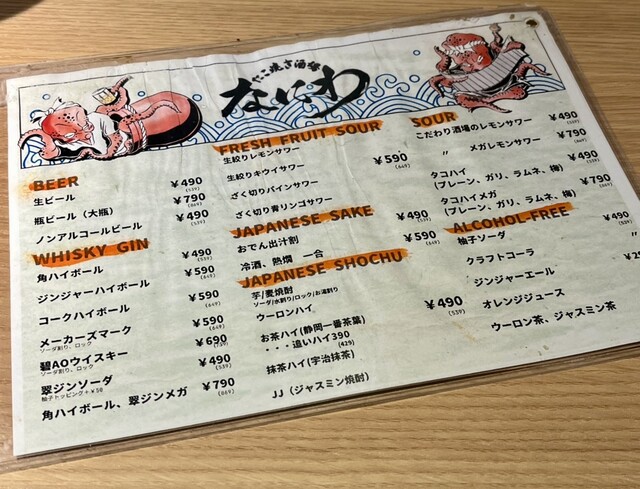 たこ焼き酒場
なにわ
BEER
生ビール ￥490
(539)
瓶ビール（大瓶） ￥790
(869)
ノンアルコールビール ￥490
(539)
WHISKY GIN
角ハイボール ￥490
(539)
ジンジャーハイボール ￥590
(649)
コークハイボール ￥590
(649)
メーカーズマーク ￥590
ソーダ割り、ロック (649)
碧AOウイスキー ￥690
ソーダ割り、ロック
翠ジンソーダ ￥490
柚子トッピング+￥50 (539)
角ハイボール、翠ジンメガ ￥790
(869)
FRESH FRUIT SOUR
生絞りレモンサワー
生絞りキウイサワー ￥590
(649)
ざく切りパインサワー
ざく切り青リンゴサワー
JAPANESE SAKE
おでん出汁割 ￥490
(539)
冷酒、熱燗 一合 ￥590
(649)
JAPANESE SHOCHU
芋/麦焼酎
ソーダ/水割り/ロック/お湯割り
ウーロンハイ ￥490
(539)
お茶ハイ(静岡一番茶葉)
・・・追いハイ390
(429)
抹茶ハイ(宇治抹茶)
JJ（ジャスミン焼酎）
SOUR
こだわり酒場のレモンサワー ￥490
(539)
〃 メガレモンサワー ￥790
(869)
タコハイ ￥490
(プレーン、ガリ、ラムネ、梅) (539)
タコハイメガ ￥790
(プレーン、ガリ、ラムネ、梅) (869)
ALCOHOL-FREE
柚子ソーダ ￥490
(539)
クラフトコーラ
ジンジャーエール
オレンジジュース
ウーロン茶、ジャスミン茶